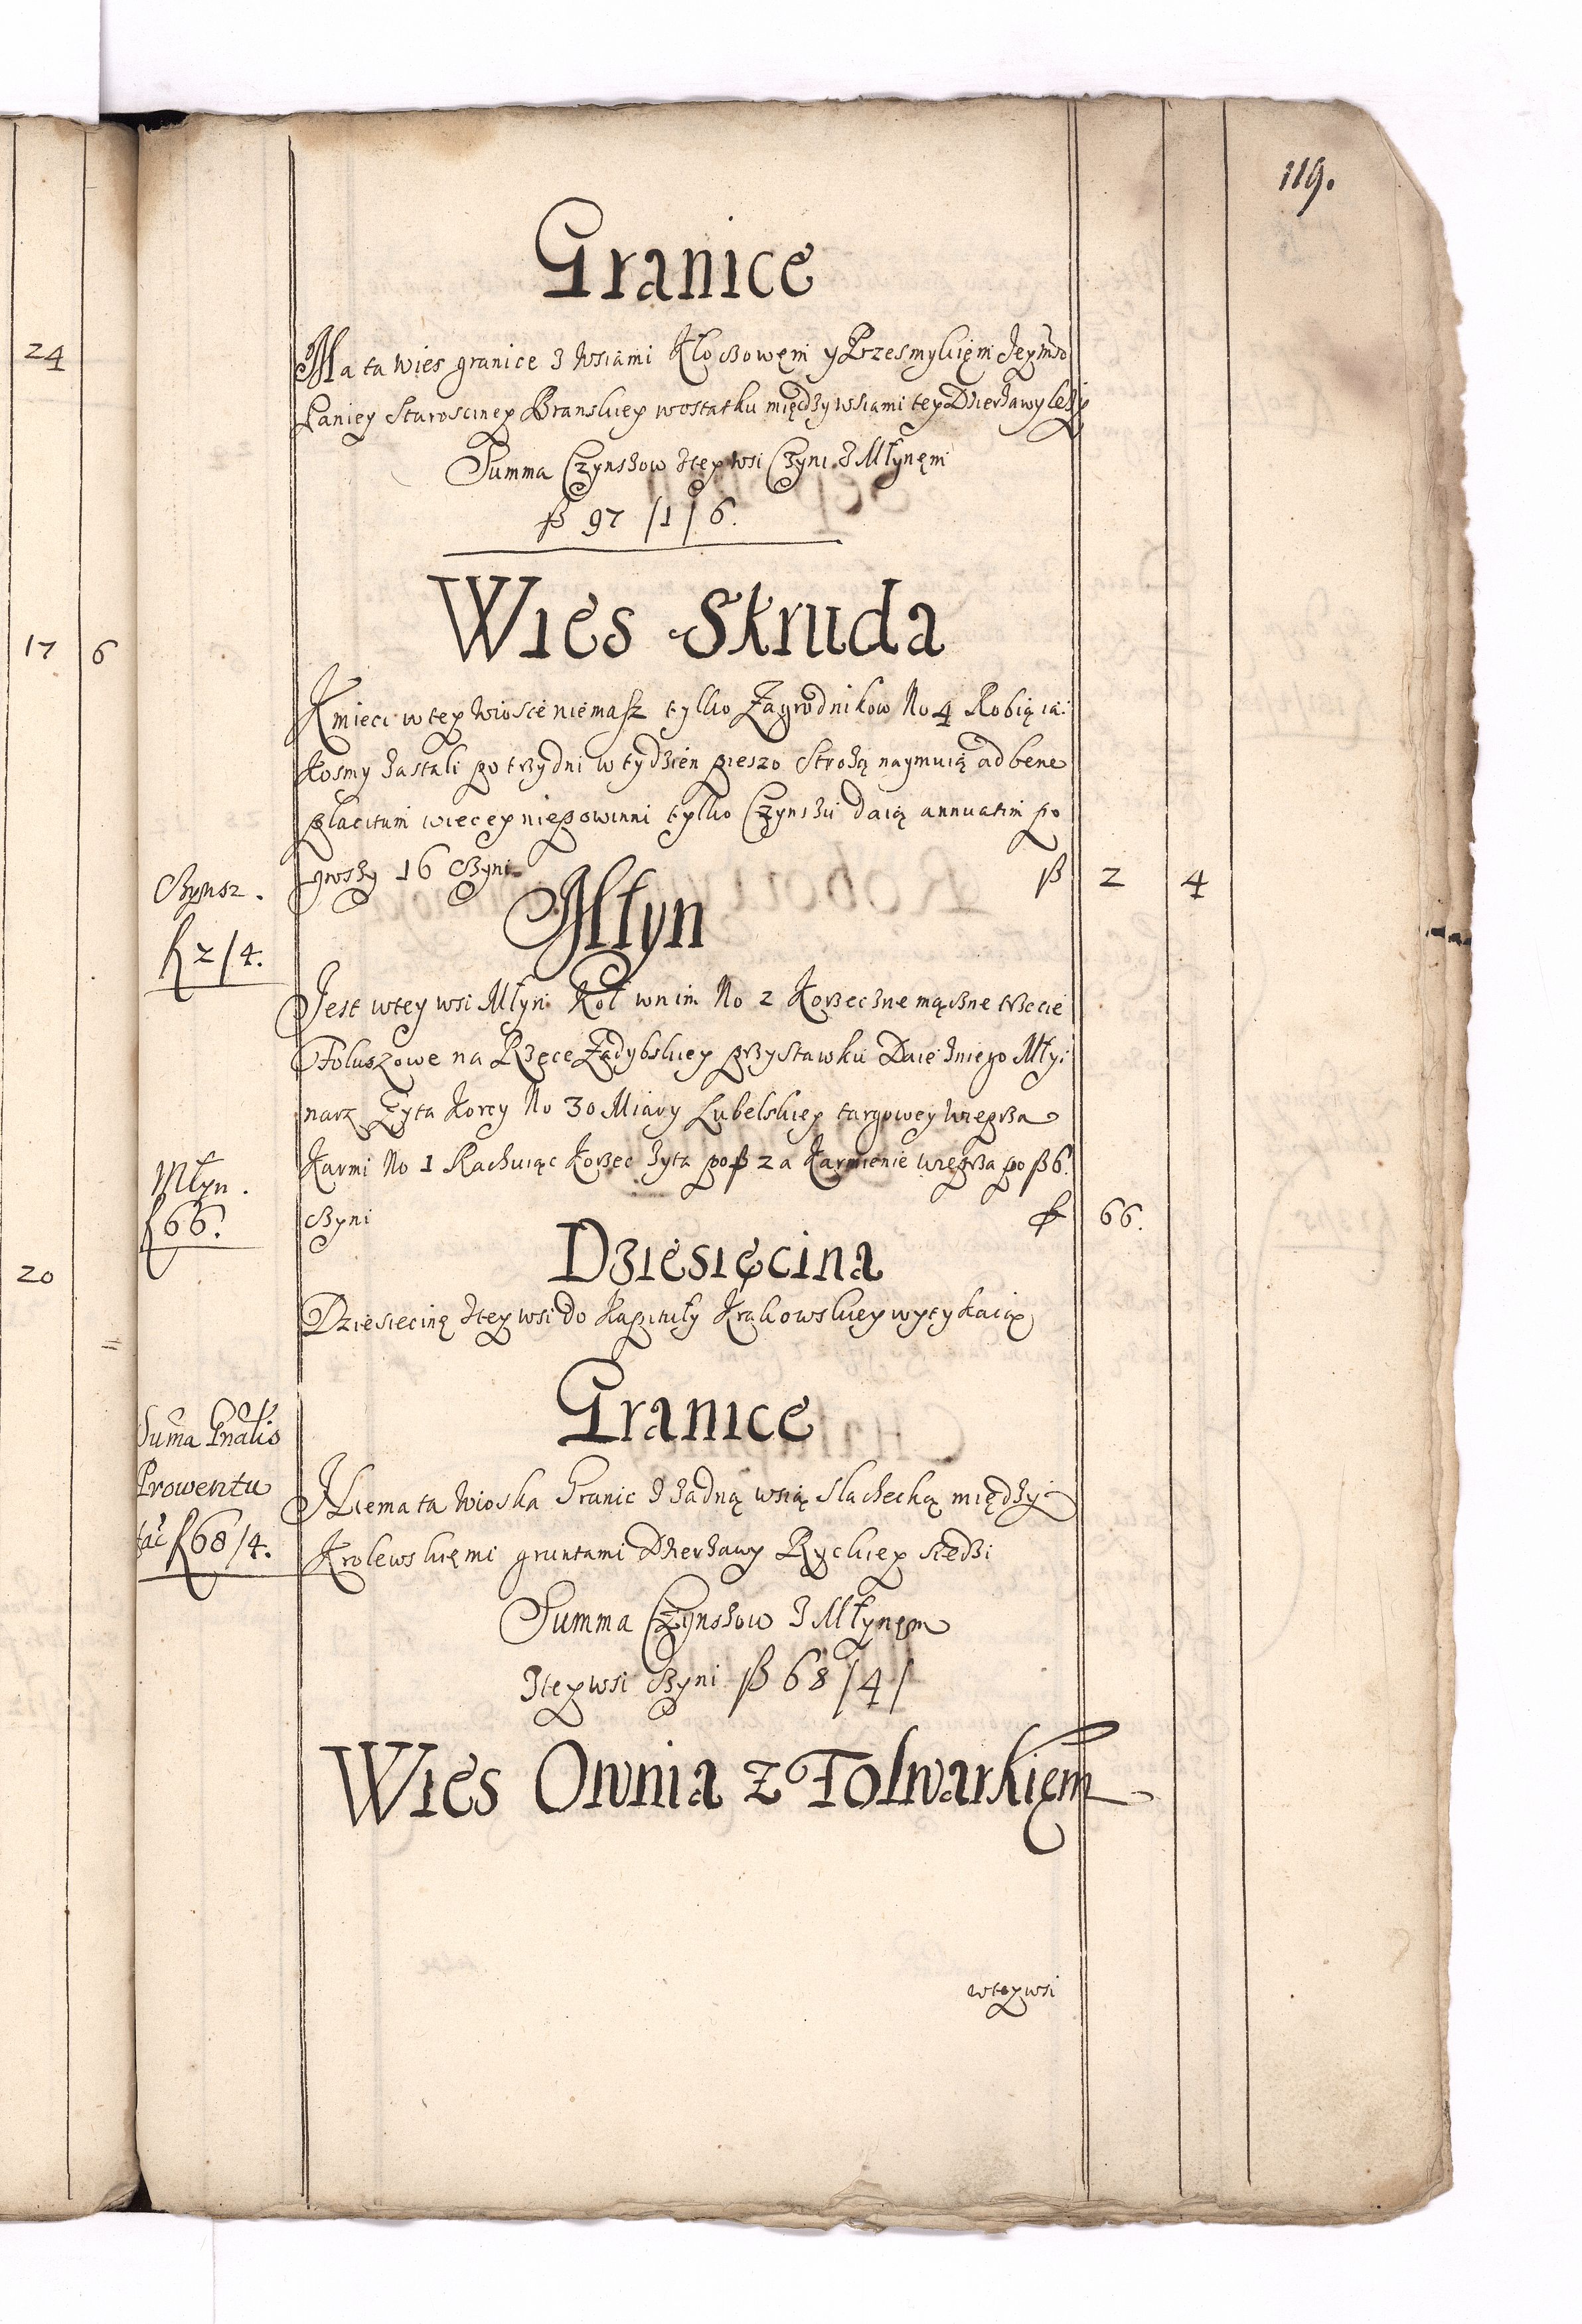 119.
Granice
Ma ta wies granice z wsiami Kłoczowęm y Przesmykięm Jeymści
Paniey Starosciney Branskiey wostatku między wsiami tey Dzierzawy leży
Summa Czynszow ztey wsi Czyni z Młynęm
ƒ 97 /1/ 6.
Wies Skruda
Kmieci w tey wiosce niemasz tylko Zagrodnikow No 4 Robią ia:
kosmy zastali po trzy dni w tydzien pieszo Strożą naymuią ad bene
placitum wiecey niepowinni tylko Czynszu daią annuatim po
groszy 16 Czyni ƒ 2 4
Czynsz.
ƒ 2/4.
Młyn
Jest wtey wsi Młyn Koł wnim No 2 Korzeczne mączne trzecie
Foluszowe na Rzęce Zadybskiey przystawku Daie zniego Mły:
narz Zyta Korcy No 30 Miary Lubelskiey targowey wieprza
Karmi No 1 Rachuiąc Korzec żyta po ƒ 2 a Karmienie wieprza po ƒ 6.
Czyni ƒ 66.
Młyn.
ƒ 66.
Dziesięcina
Dziesiecinę ztey wsi do Kapituły Krakowskiey wytykaią
Granice
Niema ta wioska Granic z żadną wsią slachecką między
Krolewskięmi gruntami Dzierżawy Ryckiey siedzi
Suma Gnalis
Prowentu
facit ƒ 68/4.
Summa Czynszow z Młynęm
ztey wsi Czyni ƒ 68/4/
Wies Ownia z Folwarkięm
wtey wsi
24
17 6
20